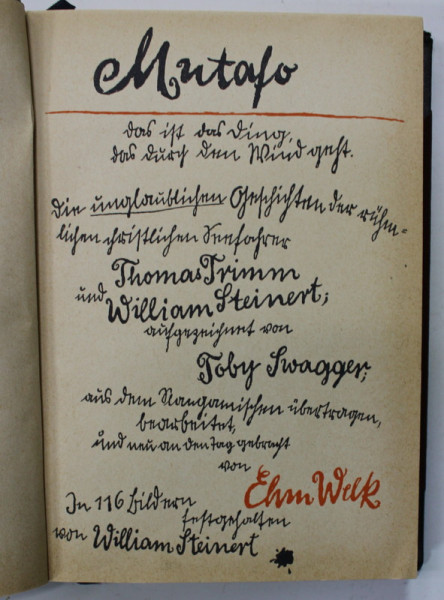 Mutafo
das ist das Ding,
das durch den Wind geht.
Die unglaublichen Geschichten der rühm-
lichen christlichen Seefahrer
Thomas Trimm
und
William Steinert;
aufgezeichnet von
Toby Swagger;
aus dem Rangamischen übertragen,
bearbeitet,
und neu an den Tag gebracht
von
Ehm Welk
In 116 Bildern
festgehalten
von William Steinert